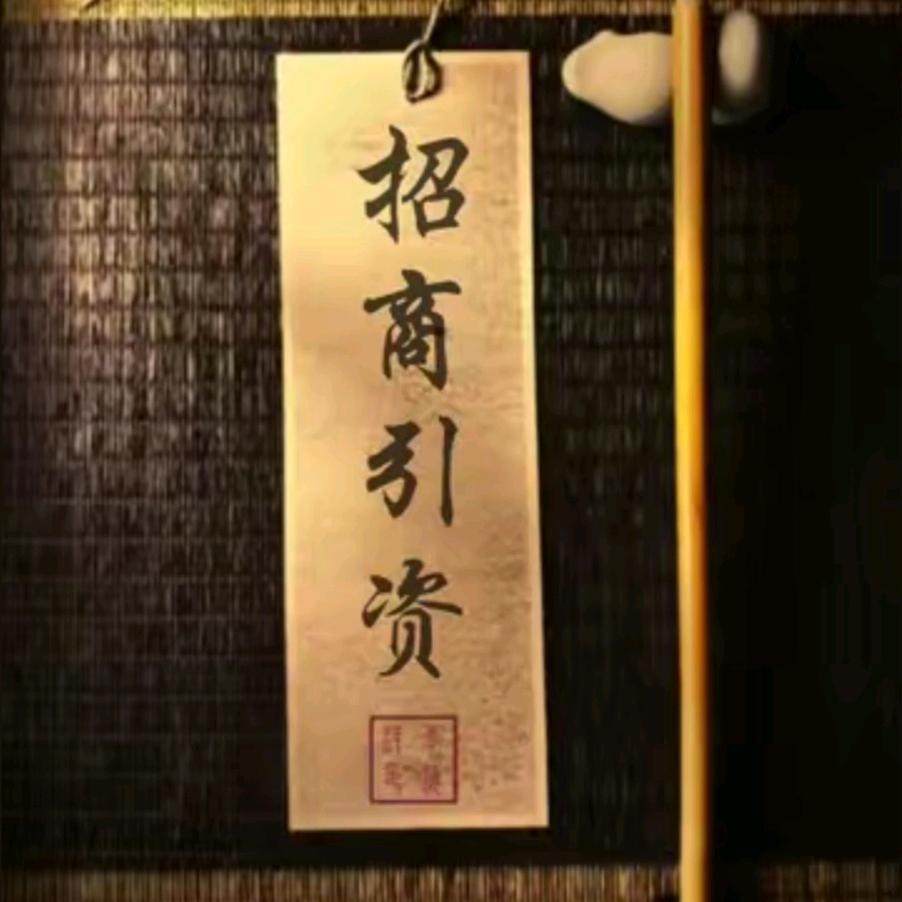 招商引资